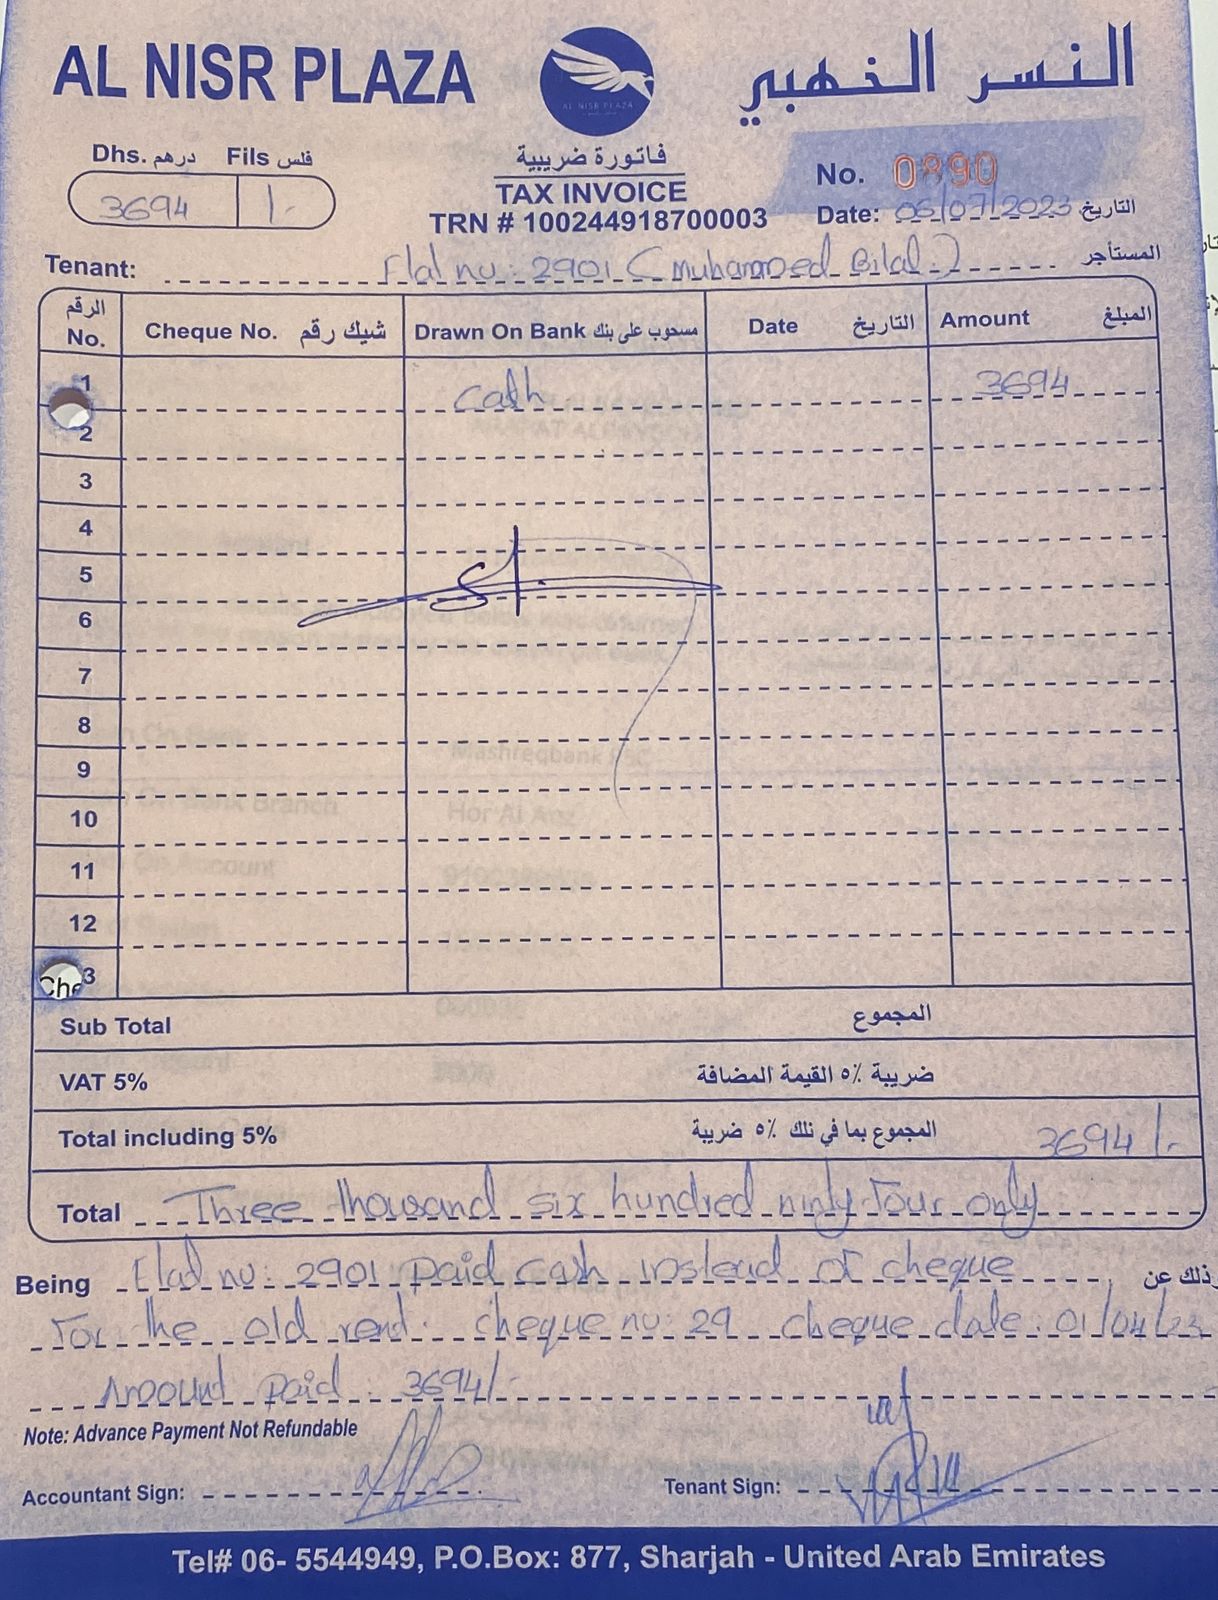 AL NISR PLAZA
AL NISR PLAZA
النسر الذهبي
Dhs. درهم Fils فلس
3694 /-
فاتورة ضريبية
TAX INVOICE
TRN # 100244918700003
No. 0890
Date: 06/07/2023 التاريخ
Tenant: Flat no: 2901 (Muhammed Bilal) المستأجر
الرقم No. Cheque No. شيك رقم Drawn On Bank مسحوب على بنك Date التاريخ Amount المبلغ
1 Cash 3694
2
3
4
5
6
7
8
9
10
11
12
3
Che
Mashreqbank PSC
Sub Total المجموع
VAT 5% ضريبة ٥٪ القيمة المضافة
Total including 5% المجموع بما في ذلك ٥٪ ضريبة 3694/-
Total Three thousand six hundred ninty four only
Being Flat no: 2901 paid cash instead of cheque وذلك عن
For the old rent. cheque no: 29 cheque date: 01/04/23
Amount paid: 3694/-
Note: Advance Payment Not Refundable
Accountant Sign: Tenant Sign:
Tel# 06- 5544949, P.O.Box: 877, Sharjah - United Arab Emirates